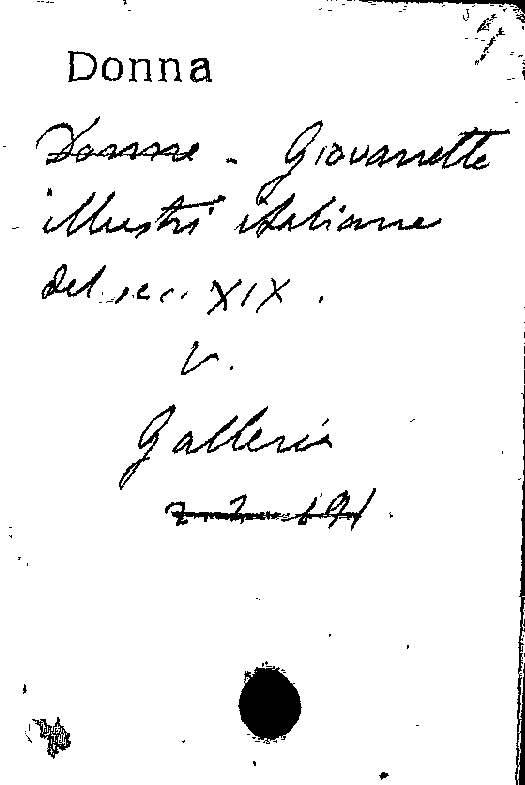 Donna
Donne - Giovanette
illustri italiane
del sec. XIX.
V.
Galleria